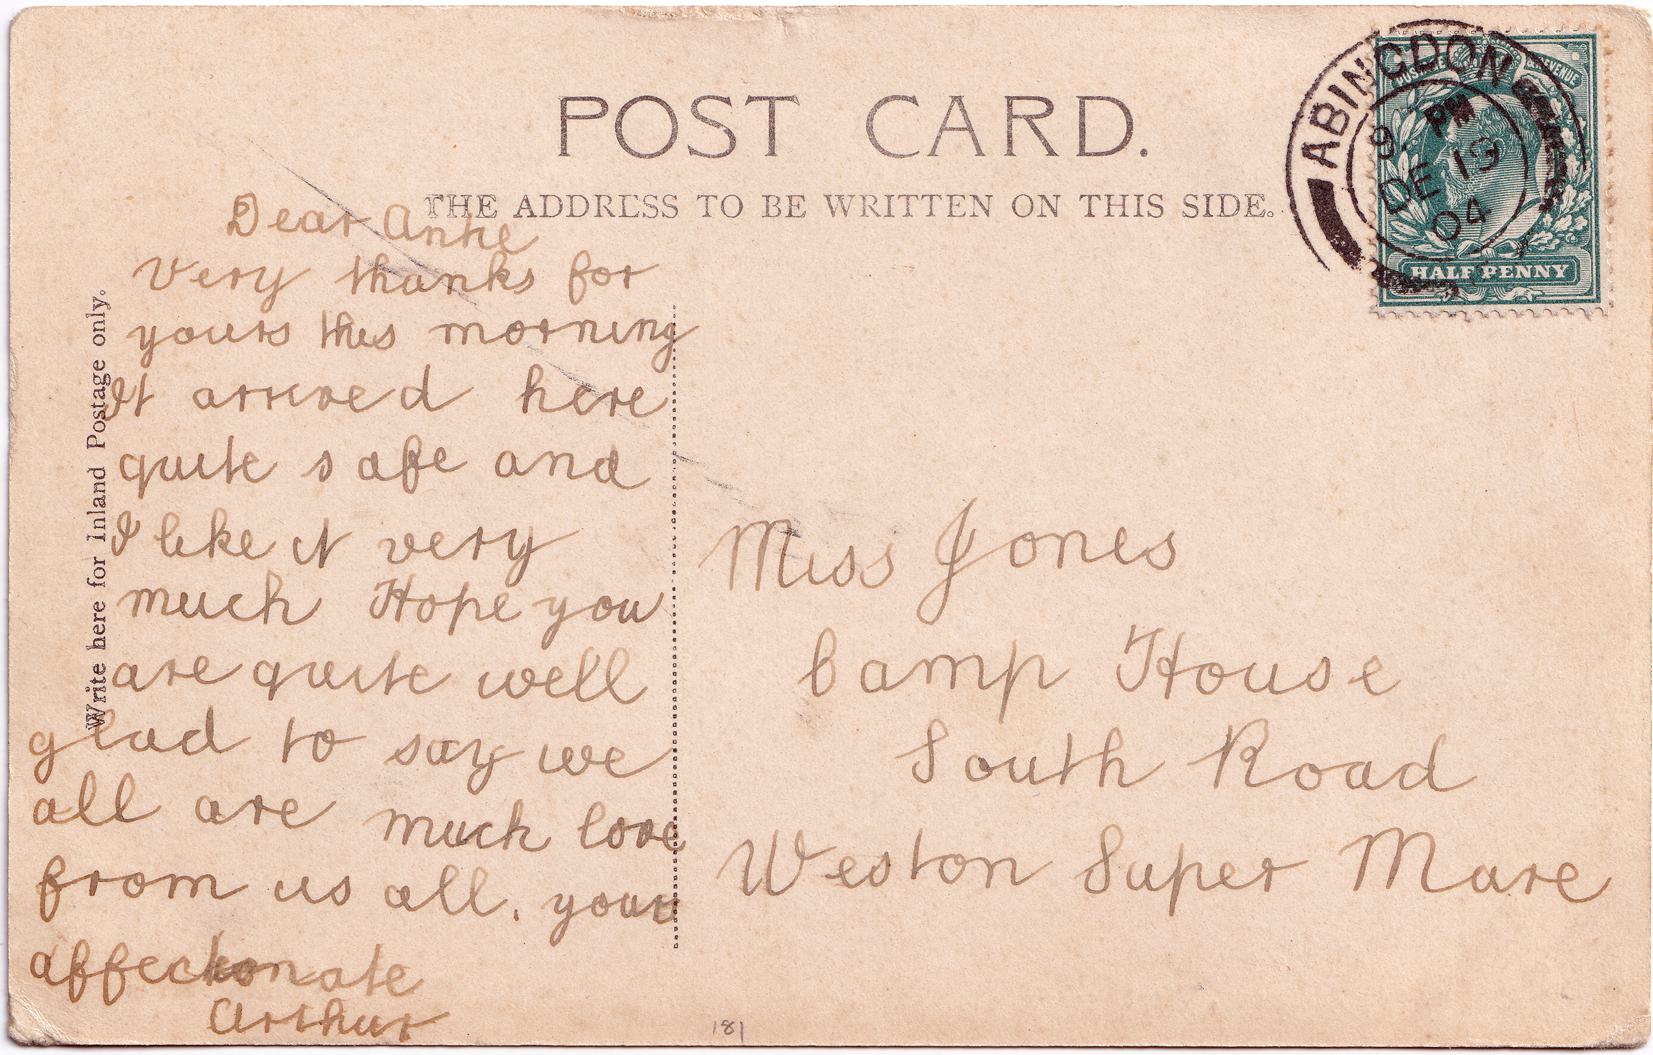 POST CARD.
THE ADDRESS TO BE WRITTEN ON THIS SIDE.
Write here for Inland Postage only.
ABINGDON
9. PM
DE 19
04
POSTAGE REVENUE
HALF PENNY
Dear
very thanks for
yours this morning
It arrived here
quite safe and
I like it very
much Hope you
are quite well
glad to say we
all are much love
from us all. your
affectionate
Arthur
Miss Jones
Camp House
South Road
Weston Super Mare
181